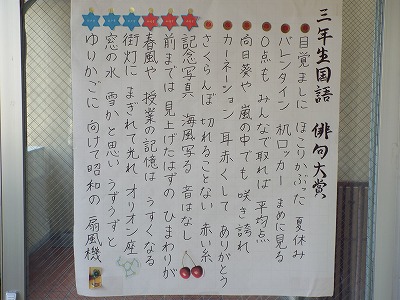 三年生国語 俳句大賞
目覚ましに ほこりかぶった 夏休み
バレンタイン 机ロッカー まめに見る
〇点も みんなで取れば 平均点
向日葵や 嵐の中でも 咲き誇れ
カーネーション 耳赤くして ありがとう
さくらんぼ 切れることない 赤い糸
記念写真 海風写る 音はなし
前までは 見上げたはずの ひまわりが
春風や 授業の記憶は うすくなる
街灯に まぎれて光れ オリオン座
窓の水 雪かと思い うずうずと
ゆりかごに 向けて昭和の 扇風機